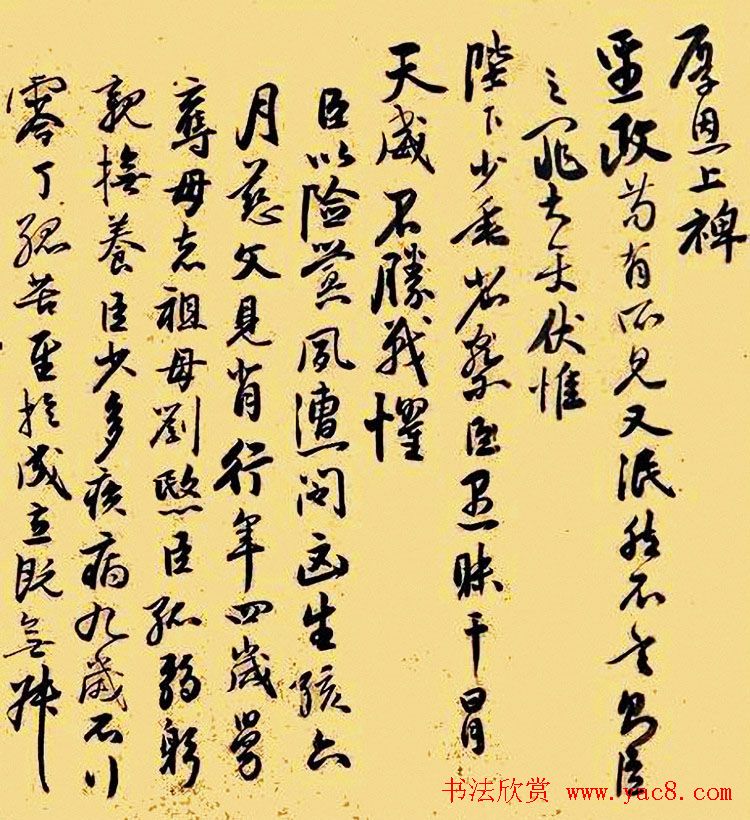 厚恩上裨
聖政苟有所見又泯然不言則臣
之罪大矣伏惟
陛下少垂省察臣愚昧干冒
天威不勝戰懼
臣以險釁夙遭閔凶生孩六
月慈父見背行年四歲舅
奪母志祖母劉愍臣孤弱躬
親撫養臣少多疾病九歲不行
零丁孤苦至於成立既無叔
书法欣赏 www.yac8.com